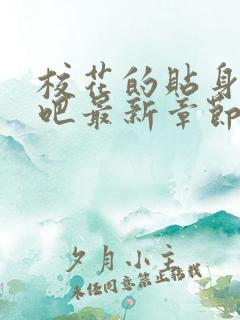 校花的贴身
吧最新章节
夕月小主
未经同意禁止转载